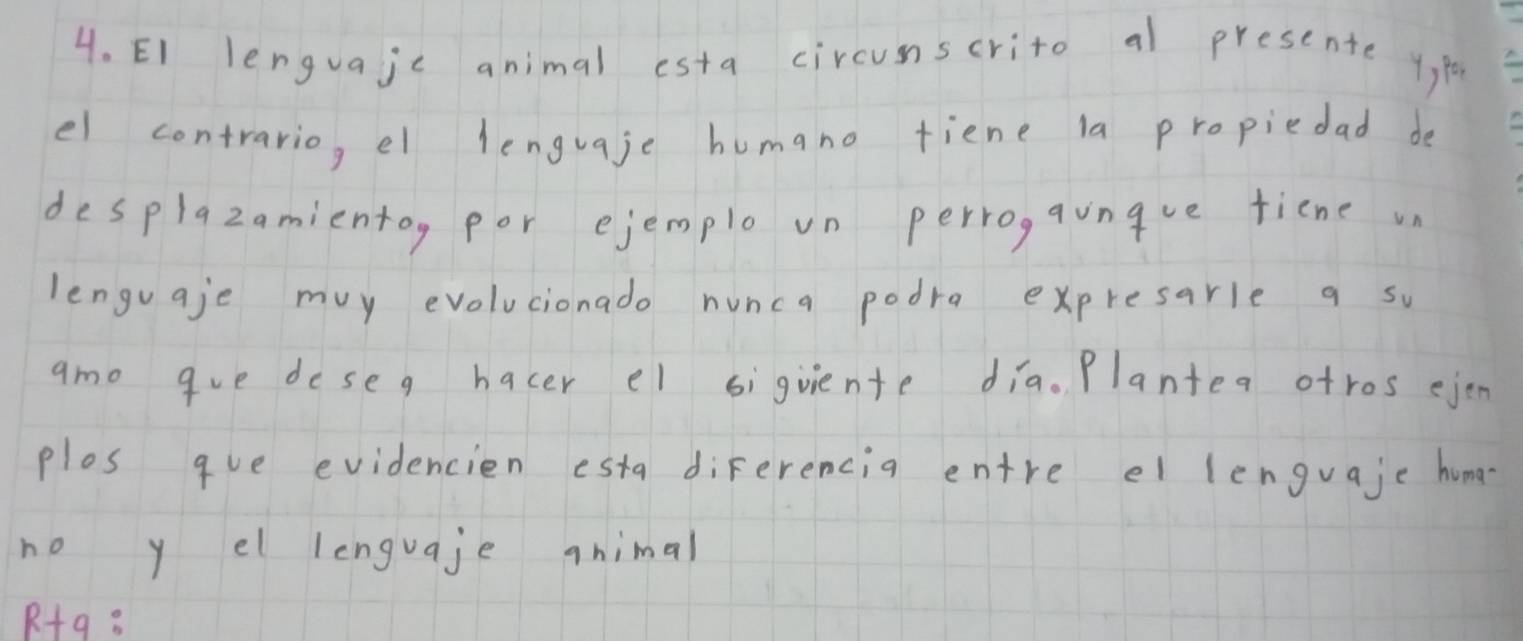 4. El lenguaje animal esta circunscrito al presente y, por
el contrario, el lenguaje humano tiene la propiedad de
desplazamiento, por ejemplo un perro, aunque tiene un
lenguaje muy evolucionado nunca podra expresarle a su
amo que desea hacer el siguiente día. Plantea otros ejem
plos que evidencien esta diferencia entre el lenguaje huma-
no y el lenguaje animal
Rta: